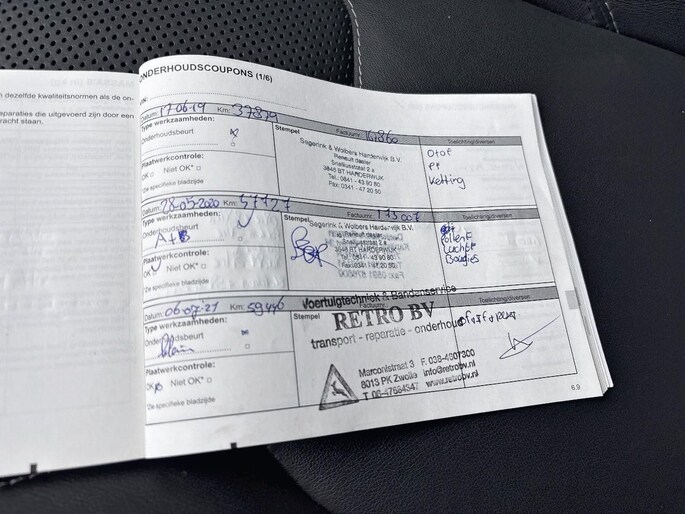 n dezelfde kwaliteitsnormen als de on-
eparaties die uitgevoerd zijn door een
racht staan.
ONDERHOUDSCOUPONS (1/6)
Datum: 17-06-19 Km: 37879 Factuurnr.: Toelichting/diversen
Type werkzaamheden:
Onderhoudsbeurt
Stempel
Segerink & Wolbers Harderwijk B.V.
Renault dealer
3846 BT HARDERWIJK
Tel.: 0341 - 43 90 80
Fax: 0341 - 47 20 50
Otof
PF
Ketting
Plaatwerkcontrole:
OK Niet OK*
*Zie specifieke bladzijde
Datum: 28-05-2020 Km: 57727 Factuurnr.: 173007 Toelichting/diversen
Type werkzaamheden:
Onderhoudsbeurt
A+B
Stempel
Segerink & Wolbers Harderwijk B.V.
Renault dealer
HARDERWIJK
PollenF
Luchtf
Bougies
Plaatwerkcontrole:
Niet OK*
*Zie specifieke bladzijde
Datum: 06-07-21 Km: 59446 Factuurnr.: Toelichting/diversen
Type werkzaamheden:
Onderhoudsbeurt
Klein
Stempel
Voertuigtechniek & Bandenservice
RETRO BV
transport - reparatie - onderhoud
Marconistraat 3 F. 038-4307300
8013 PK Zwolle info@retrobv.nl
www.retrobv.nl
Plaatwerkcontrole:
OK Niet OK*
*Zie specifieke bladzijde
6.9